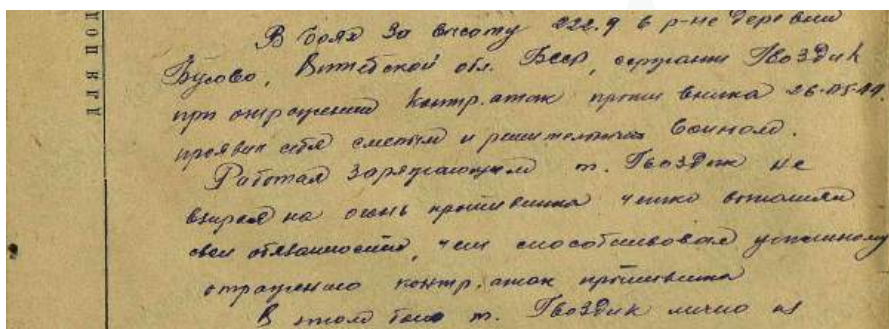 для под
В боях за высоту 222.9 в р-не деревни
Бусово, Витебской обл. Бсср, сержант Гвоздик
при отражении контр.атак противника 26-05-44.
проявил себя смелым и решительным воином.
Работая заряжающим т. Гвоздик не
взирая на огонь противника четко выполнял
свои обязанности, чем способствовал успешному
отражению контр.атак противника
В этом бою т. Гвоздик лично из